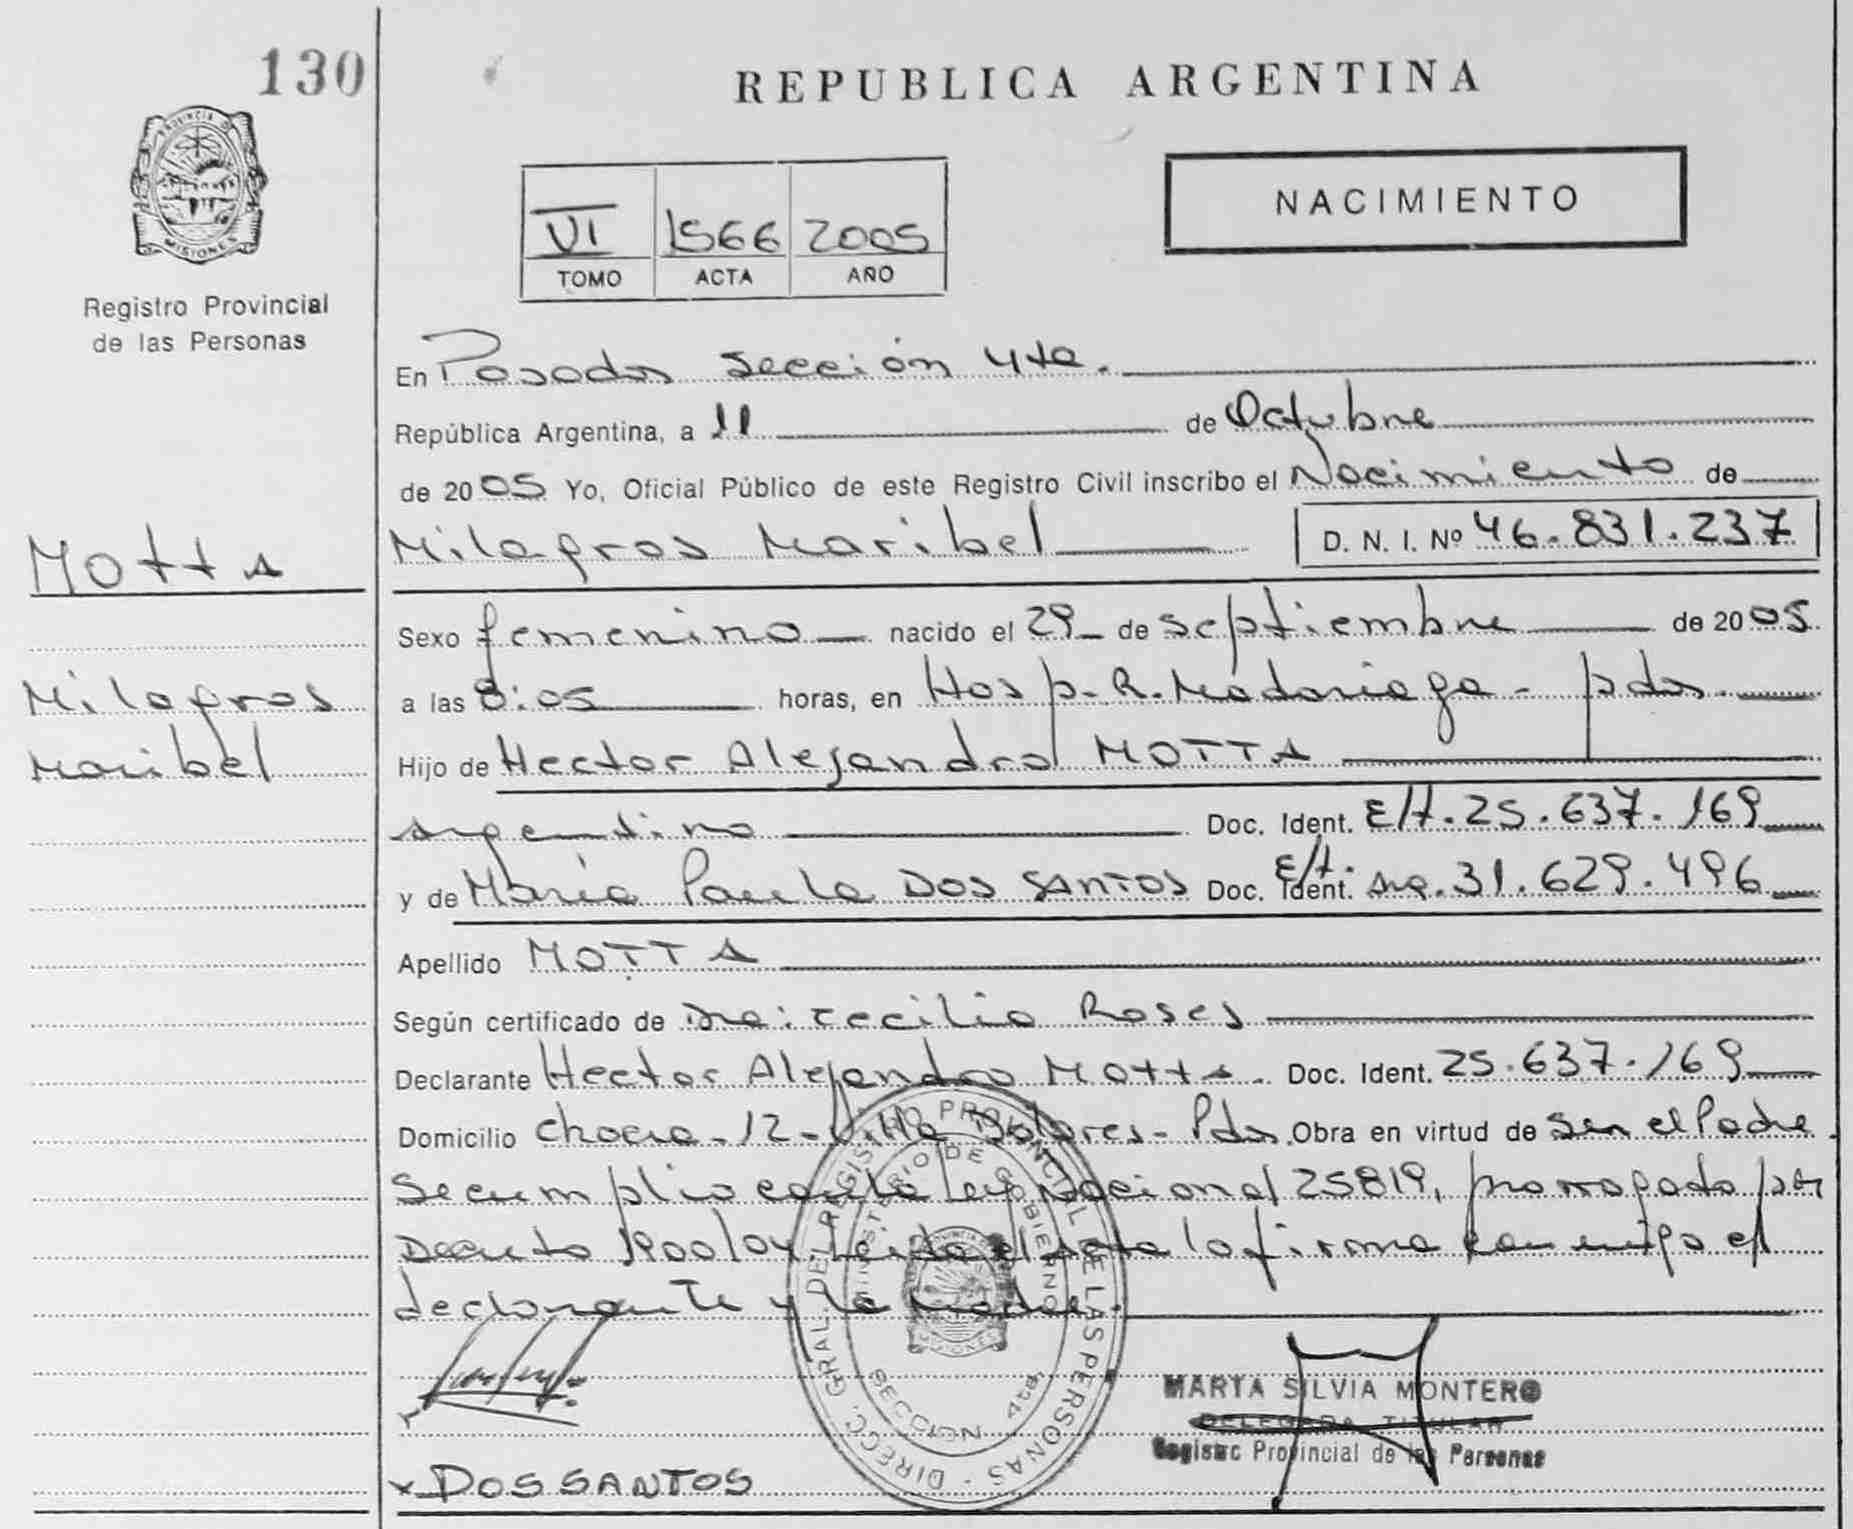 130
REPUBLICA ARGENTINA
PROVINCIA DE
MISIONES
Registro Provincial
de las Personas
NACIMIENTO
VI 1566 2005
TOMO ACTA AÑO
En Posadas Sección 4ta.
República Argentina, a 11 de Octubre
de 2005 Yo, Oficial Público de este Registro Civil inscribo el Nacimiento de
Motta
Milagros Maribel D. N. I. Nº 46.831.237
Sexo femenino nacido el 29 de septiembre de 2005
Milagros
Maribel
a las 8:05 horas, en Hosp. R. Madariaga - pdas.
Hijo de Hector Alejandro MOTTA
argentino Doc. Ident. E/t. 25.637.169
y de María Paula DOS SANTOS Doc. Ident. E/t. arg. 31.629.496
Apellido MOTTA
Según certificado de Dra: Cecilia Roses
Declarante Hector Alejandro Motta. Doc. Ident. 25.637.169
Domicilio chacra - 12 - Villa Dolores - Pdas. Obra en virtud de ser el Padre.
Se cumplio con la ley Nacional 25819, prorrogada por
Decreto 1900/04 Leida el acta la firma conmigo el
declarante y la madre.
DIRECC. GRAL. DEL REGISTRO PROVINCIAL DE LAS PERSONAS
MINISTERIO DE GOBIERNO
SECCION 4ta
MISIONES
MARTA SILVIA MONTERO
DELEGADA TITULAR
Registro Provincial de las Personas
x DOS SANTOS